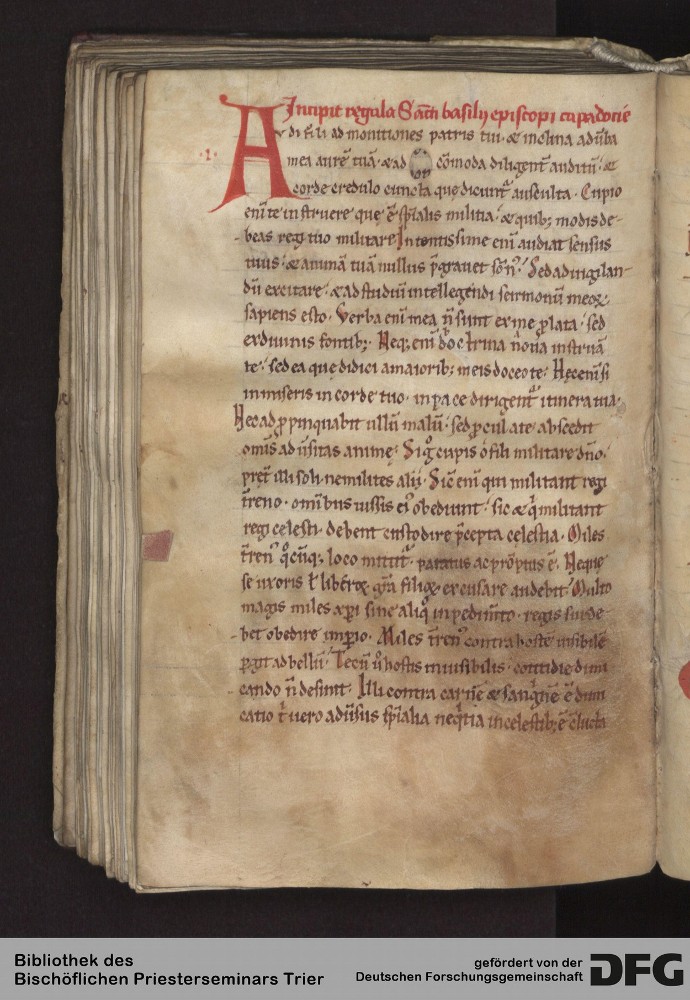 Incipit regula Sancti basilij episcopi capadocie
Audi fili admonitiones patris tui · & inclina adūba
mea aurē tuā · & ad cōmoda diligent᷑ auditū · &
corde credulo cuncta que dicunt᷑ ausculta · Cupio
enī te instruere que ē sp̄ialis militia · & quib; modis de-
beas regi tuo militare Intentissime enī audiat sensus
tuus · & animā tuā nullus p̄gravet sōn᷒ · Sed ad vigilan-
dū excitare · & ad studiū intellegendi sermonū meoꝝ
sapiens esto · Verba enī mea n̄ sunt ex me ꝓlata · sed
ex divinis fontib; · Neq; enī doctrina nova instruā
te · sed ea que didici a maiorib; meis doceo te · Hec enī si
inmiseris in corde tuo · in pace dirigent᷑ itinera tua ·
Nec adꝓpinquabit ullū malū · sed ꝓcul a te abscedit
omīs adūsitas anime · Si g̊ cupis o fili militare dn̄o ·
illi soli ne milites alij · Sic̄ enī qui militant regi
tr̄reno · omībus iussis ei᷒ obediunt · sic & qͥ militant
regi celesti · debent custodire p̄cepta celestia · Miles
tr̄ren᷒ qͦcūq; loco mittit᷑ · paratus ac ē · Neque
se uxoris ł liberoꝝ gr̄a excusare audebit Multo
magis miles xp̄i sine aliqͦ inpedimto · regis sui de-
bet obedire imꝑio · Miles tr̄ren᷒ contra hostē visibilē
ꝑgit ad bellū · Tecū v̊ hostis invisibilis · cottidie dimi
cando n̄ desinit · Illi contra carnē & sanguinē ē dimi
catio t̄ vero adūsus sp̄ialia neqͥtia in celestib; ē
· 1 ·
Bibliothek des
Bischöflichen Priesterseminars Trier
gefördert von der
Deutschen Forschungsgemeinschaft
DFG